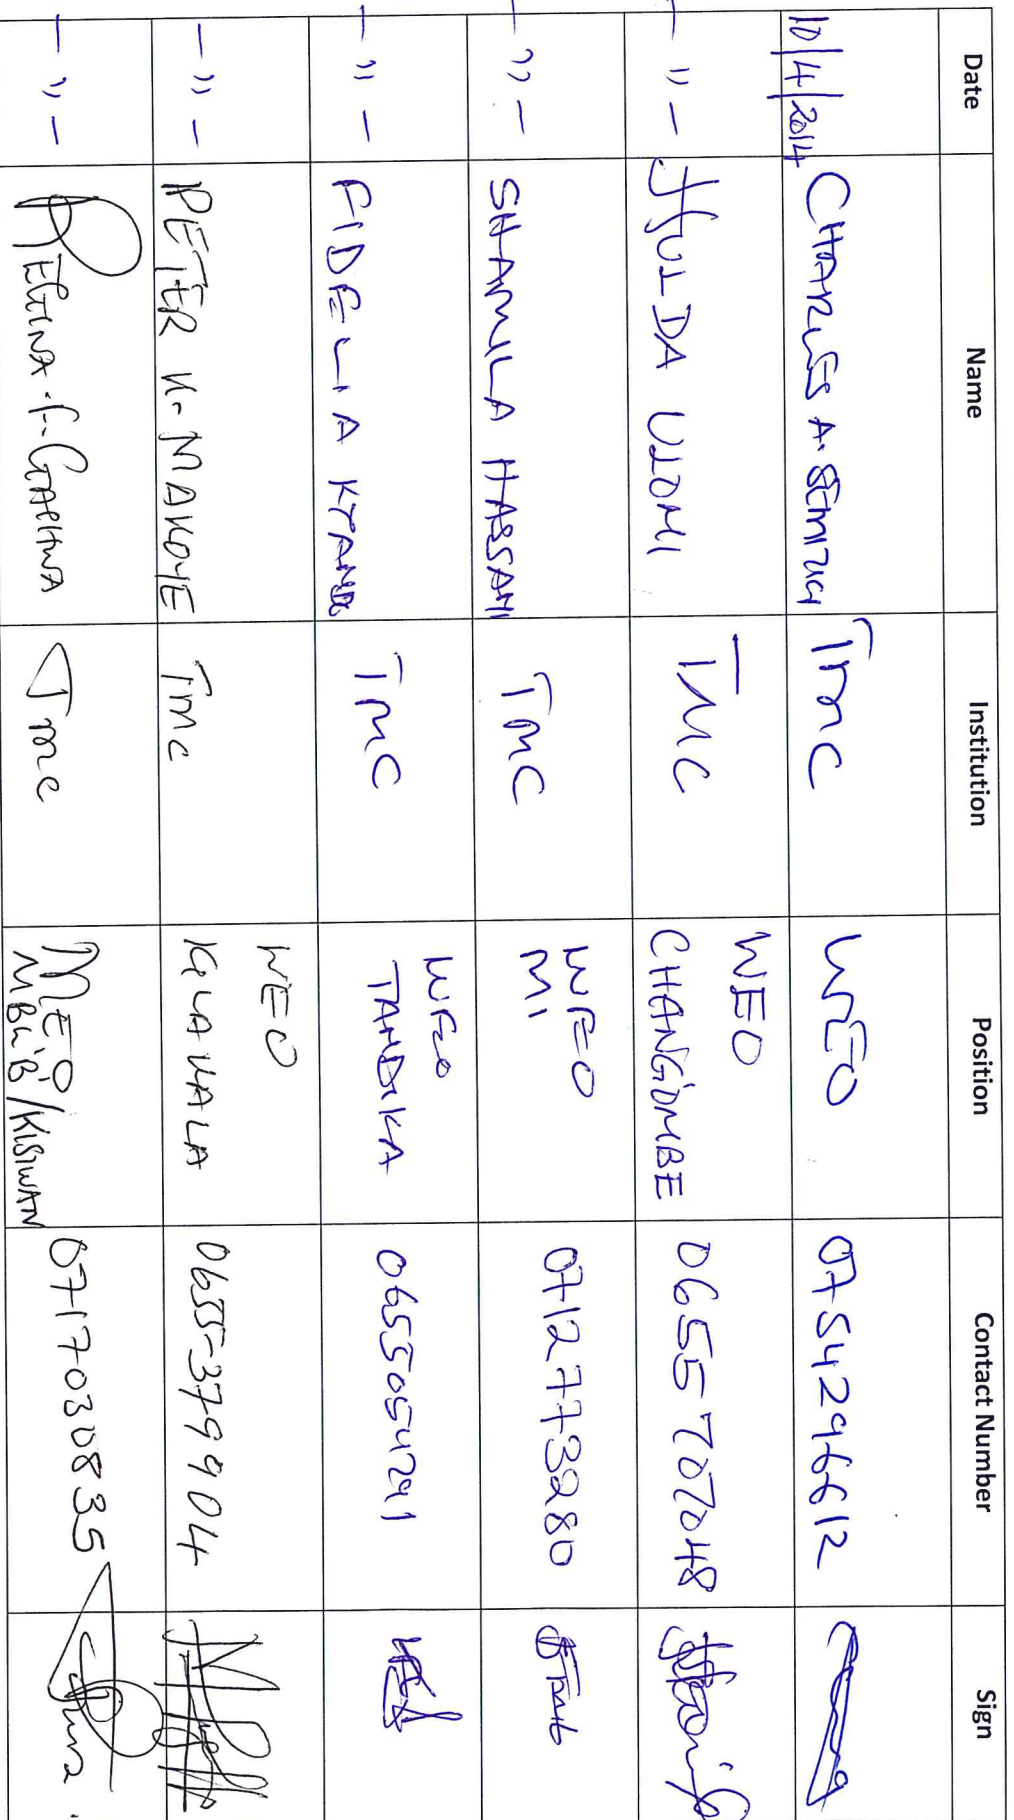 Date Name Institution Position Contact Number Sign
10/4/2014 CHARLES A. TMC WEO 0754296612
- " - HULDA ULOMI TMC WEO CHANG'OMBE 0655707048
- " - SHAMILA HASSANI TMC WEO 0712773280
- " - FIDELIA TMC WEO TANDIKA 0655054291
- " - PETER K. MAKOYE TMC WEO KILAKALA 0655-379904
- " - TMC 0717030835